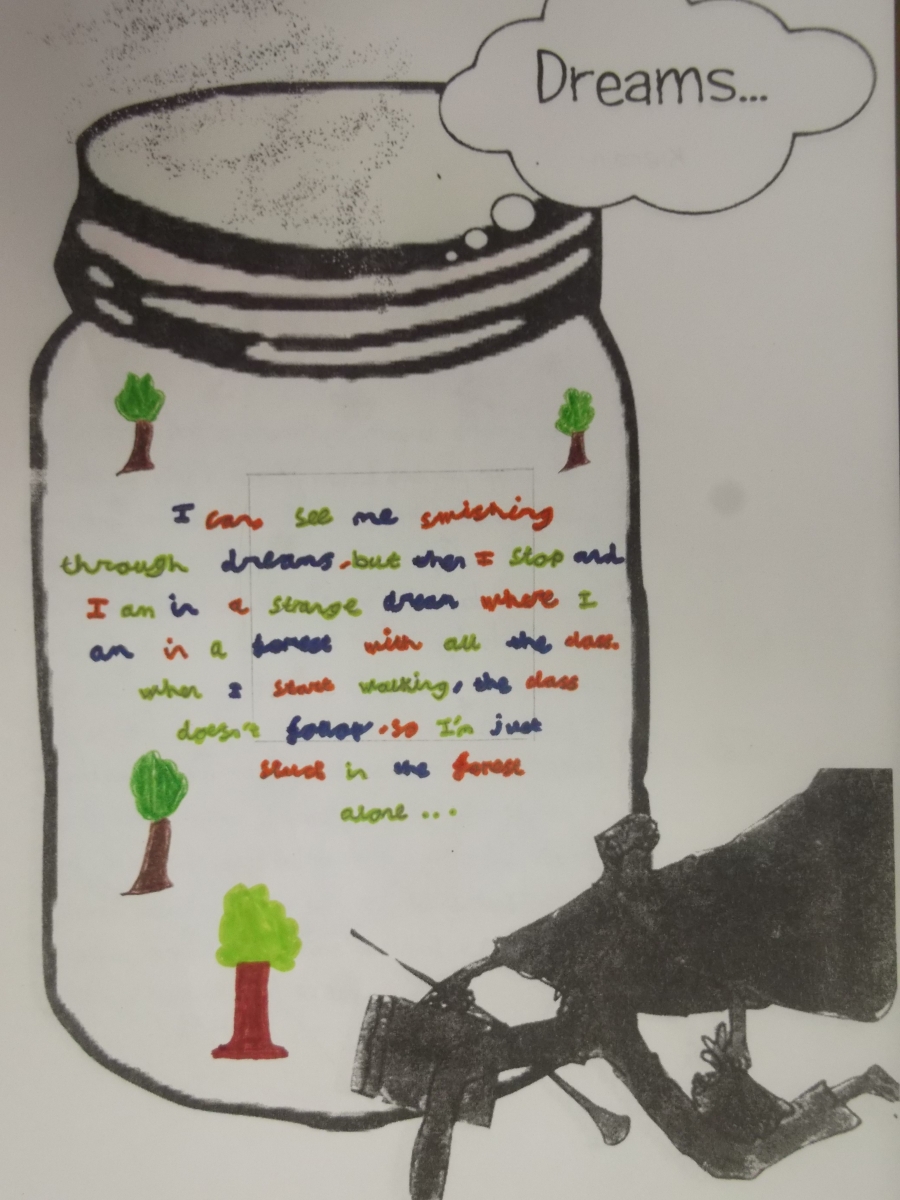 Dreams...
I can see me smishing
through dreams, but when I stop and
I am in a strange dream where I
am in a forest with all the class.
when I start walking, the class
doesn't follow. so I'm just
stuck in the forest
alone...